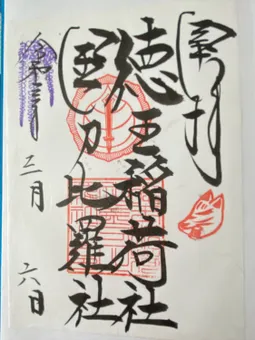 奉拝
徳王稲荷社
金刀比羅社
令和三年
二月
六日